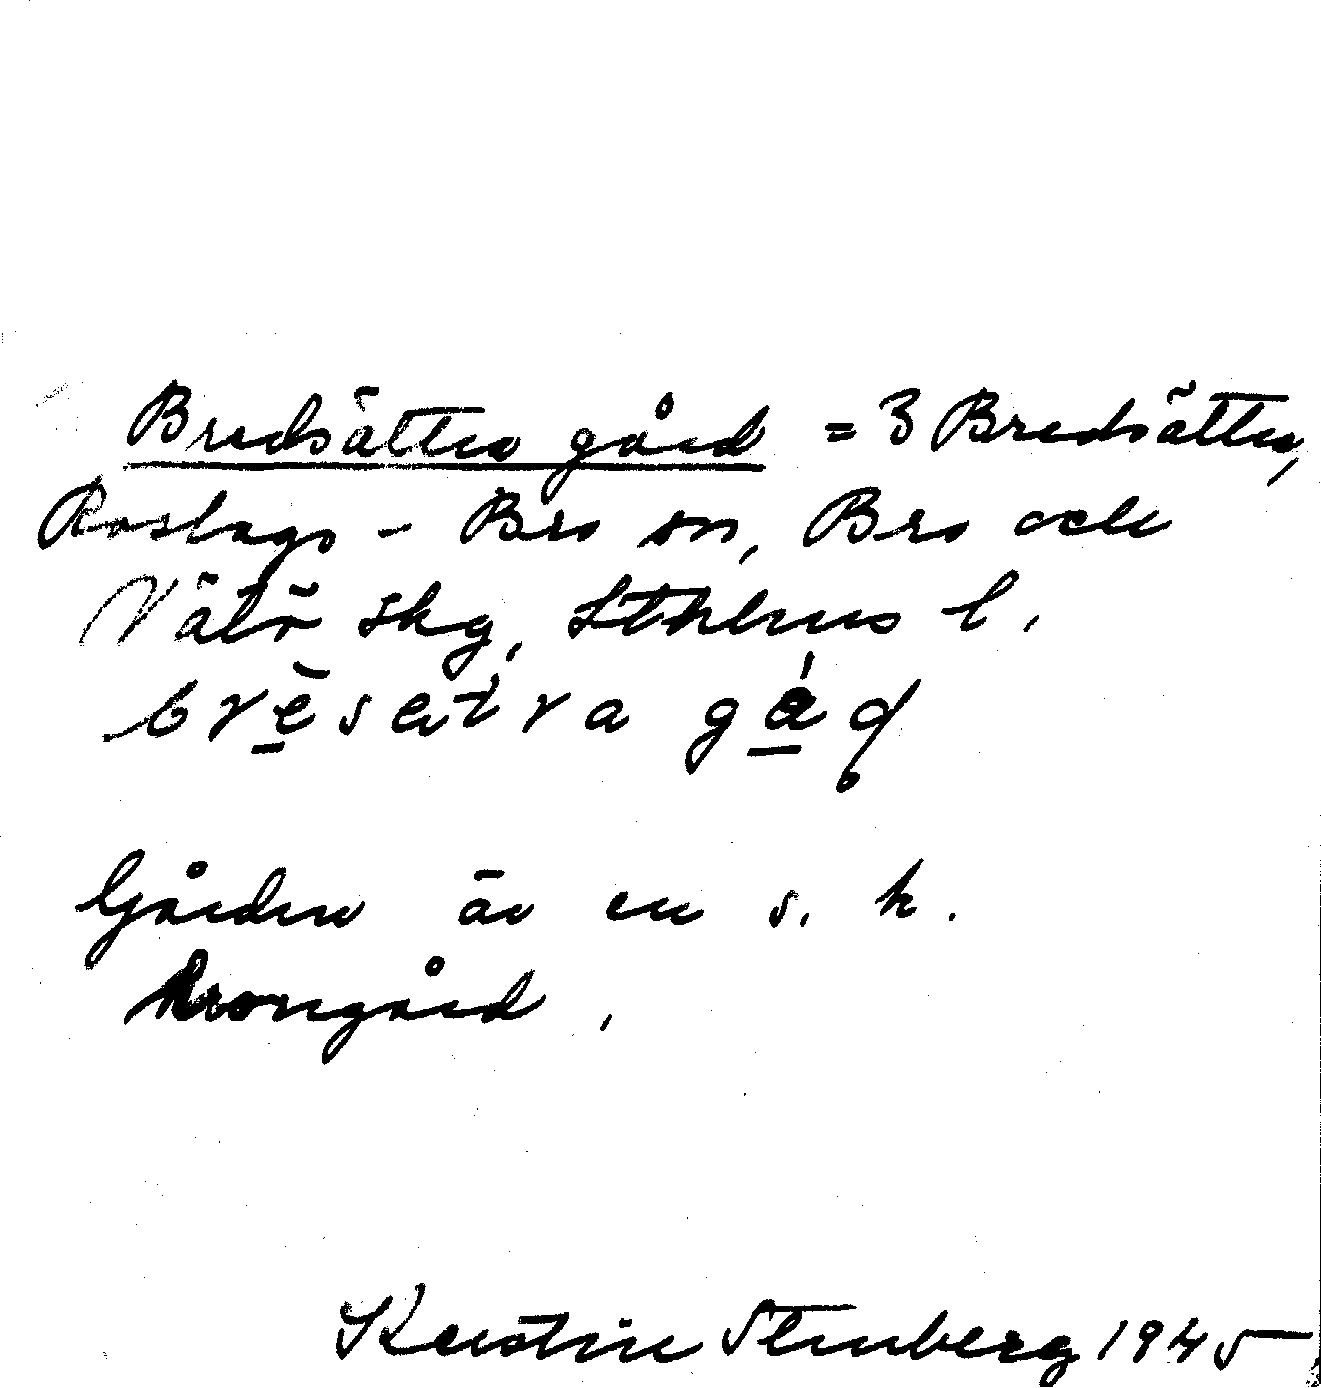 Bredsättra gård = 3 Bredsättra,
Roslags-Bro sn, Bro och
Vätö skg, Sthlms l.
Gården är en s. k.
Krongård.
Kerstin Stenberg 1945